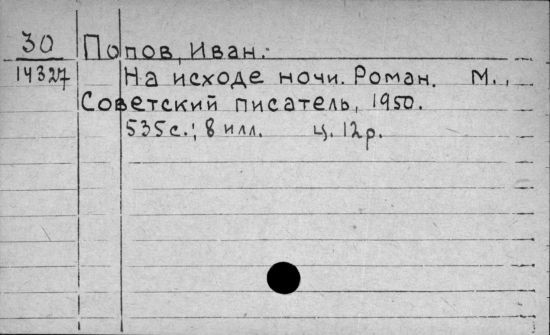 30 Попов, Иван.
14327 На исходе ночи. Роман. М.,
Советский писатель, 1950.
535 с.; 8 илл. ц. 12р.